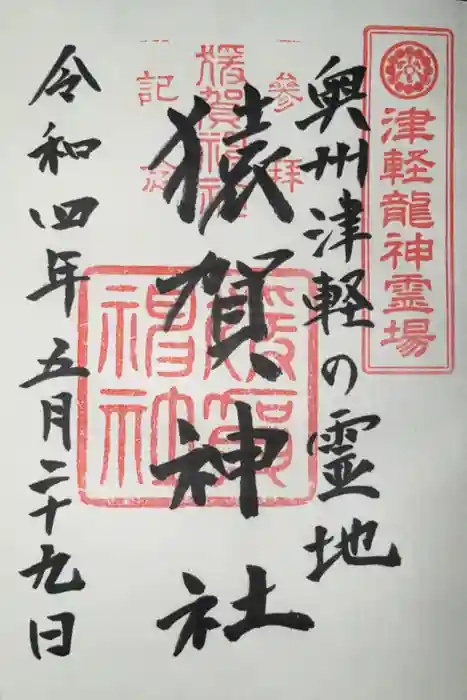 津軽龍神霊場
奥州津軽の霊地
参拝
猿賀神社
猿賀神社
記念
令和四年五月二十九日